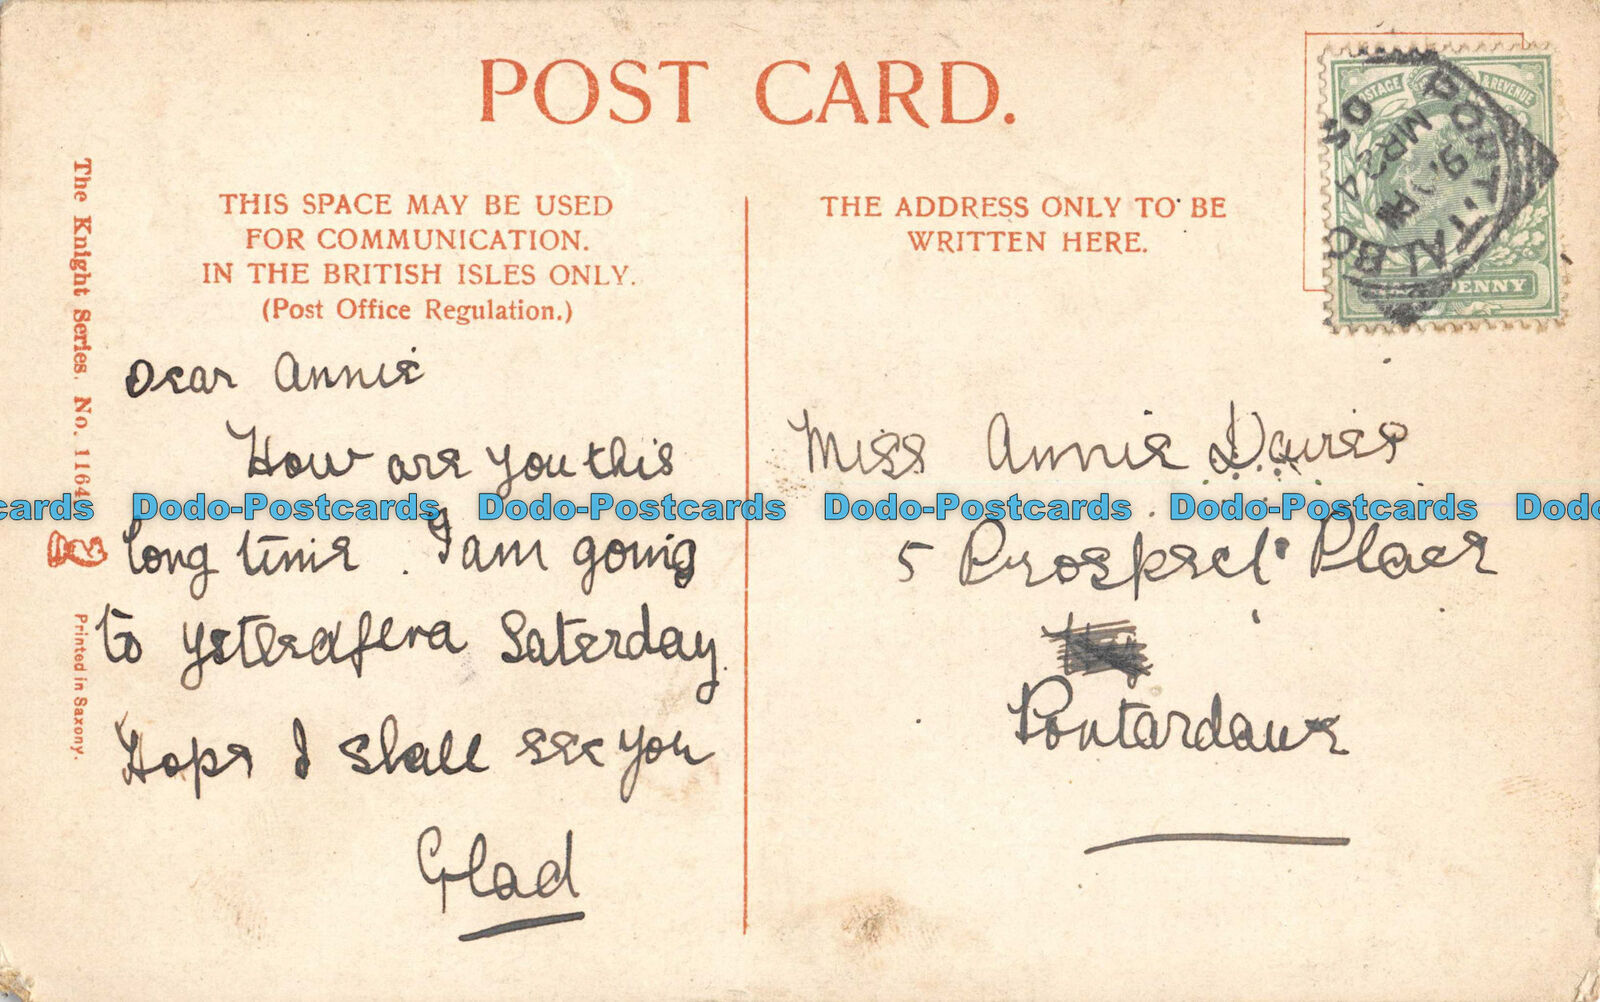 POST CARD.
THIS SPACE MAY BE USED
FOR COMMUNICATION.
IN THE BRITISH ISLES ONLY.
(Post Office Regulation.)
THE ADDRESS ONLY TO BE
WRITTEN HERE.
POSTAGE & REVENUE
PENNY
PORT TALBO
MR 24
05
The Knight Series. No. 1164
Printed in Saxony.
Dear Annie
How are you this
long time. I am going
to Saterday
Hope I shall see you
Glad
Miss Annie Davies
5 Prospect Place
Pontardawe
Dodo-Postcards Dodo-Postcards Dodo-Postcards Dodo-Postcards